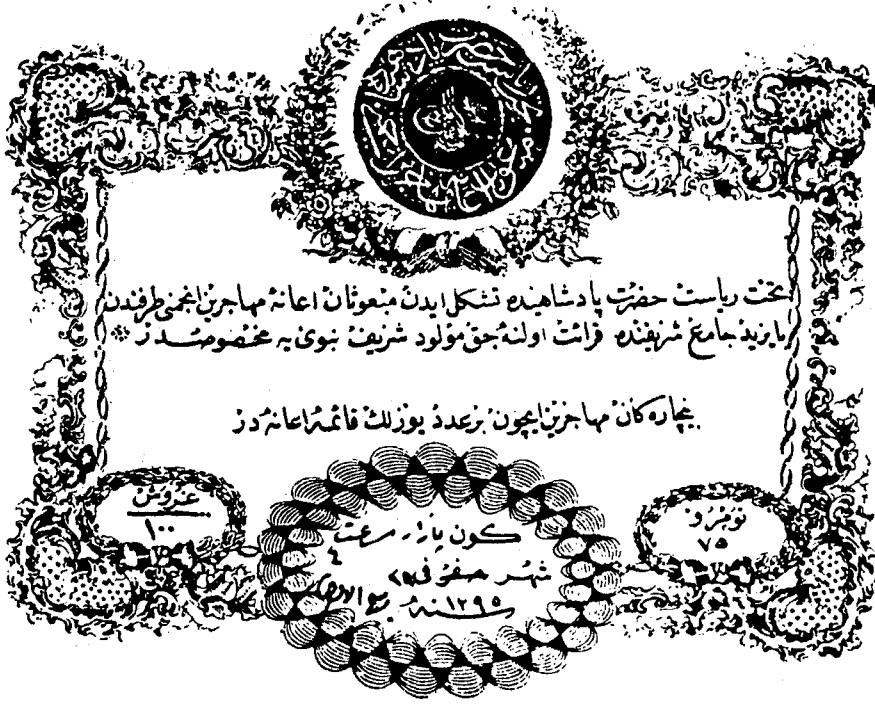 تحت ریاست حضرت پادشاهیده تشكل ایدن مبعوثان اعانهٔ مهاجرین انجمنی طرفندن
بایزید جامع شریفنده قرائت اولنه جق مولود شریف نبوی یه مخصوصدر
بیچاره كان مهاجرین ایچون بر عدد یوزلك قائمهٔ اعانه در
غروش
١٠٠
نومرو
٧٥
كون پازار ساعت ٤
شهر
سنه ١٢٩٥ ربيع الاول